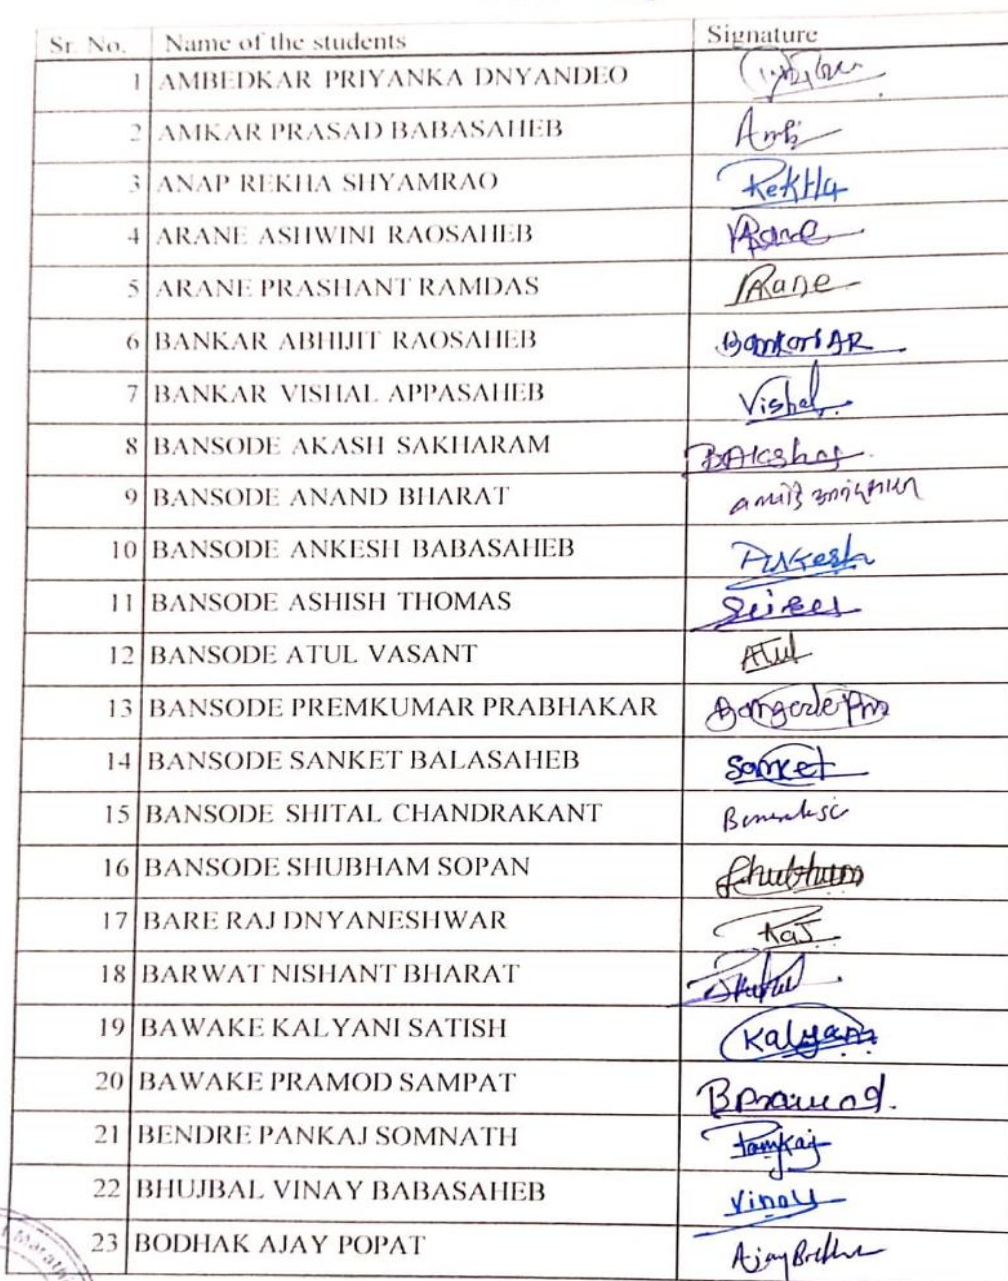 Sr. No. Name of the students Signature
1 AMBEDKAR PRIYANKA DNYANDEO
2 AMKAR PRASAD BABASAHEB
3 ANAP REKHA SHYAMRAO RekHa
4 ARANE ASHWINI RAOSAHEB
5 ARANE PRASHANT RAMDAS
6 BANKAR ABHIJIT RAOSAHEB Bankar AR
7 BANKAR VISHAL APPASAHEB Vishal
8 BANSODE AKASH SAKHARAM
9 BANSODE ANAND BHARAT
10 BANSODE ANKESH BABASAHEB Ankesh
11 BANSODE ASHISH THOMAS
12 BANSODE ATUL VASANT Atul
13 BANSODE PREMKUMAR PRABHAKAR
14 BANSODE SANKET BALASAHEB Sanket
15 BANSODE SHITAL CHANDRAKANT
16 BANSODE SHUBHAM SOPAN Shubham
17 BARE RAJ DNYANESHWAR Raj
18 BARWAT NISHANT BHARAT
19 BAWAKE KALYANI SATISH Kalyani
20 BAWAKE PRAMOD SAMPAT BPramod.
21 BENDRE PANKAJ SOMNATH Pankaj
22 BHUJBAL VINAY BABASAHEB Vinay
23 BODHAK AJAY POPAT Ajay
Marath